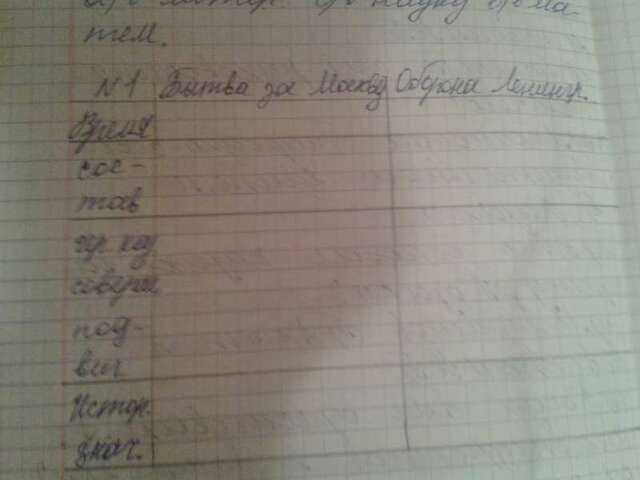 тем.
№1 Битва за Москву Оборона Ленингр.
Время
сос-
тав
совера
под-
виг
Истор.
знач.